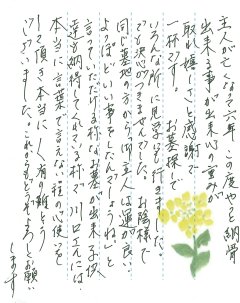 主人が亡くなって六年 この度やっと納骨
出来る事が出来心の重みが
取れ嬉しさと感謝で
一杯です。 お墓探しで
いろんな所に見学にも行きました。
でも決心がつきませんでした。お陰様で
同じ墓地の方から「御主人は運が良い
よっぽどいい事をしたんでしょうね」と
言っていただける様なお墓が出来 子供
達も納得してくれました。川口さんには
本当に言葉で言えない程の心使いを
して頂き本当に 有り難とう
ございました。これからもどうぞよろしくお願い
します